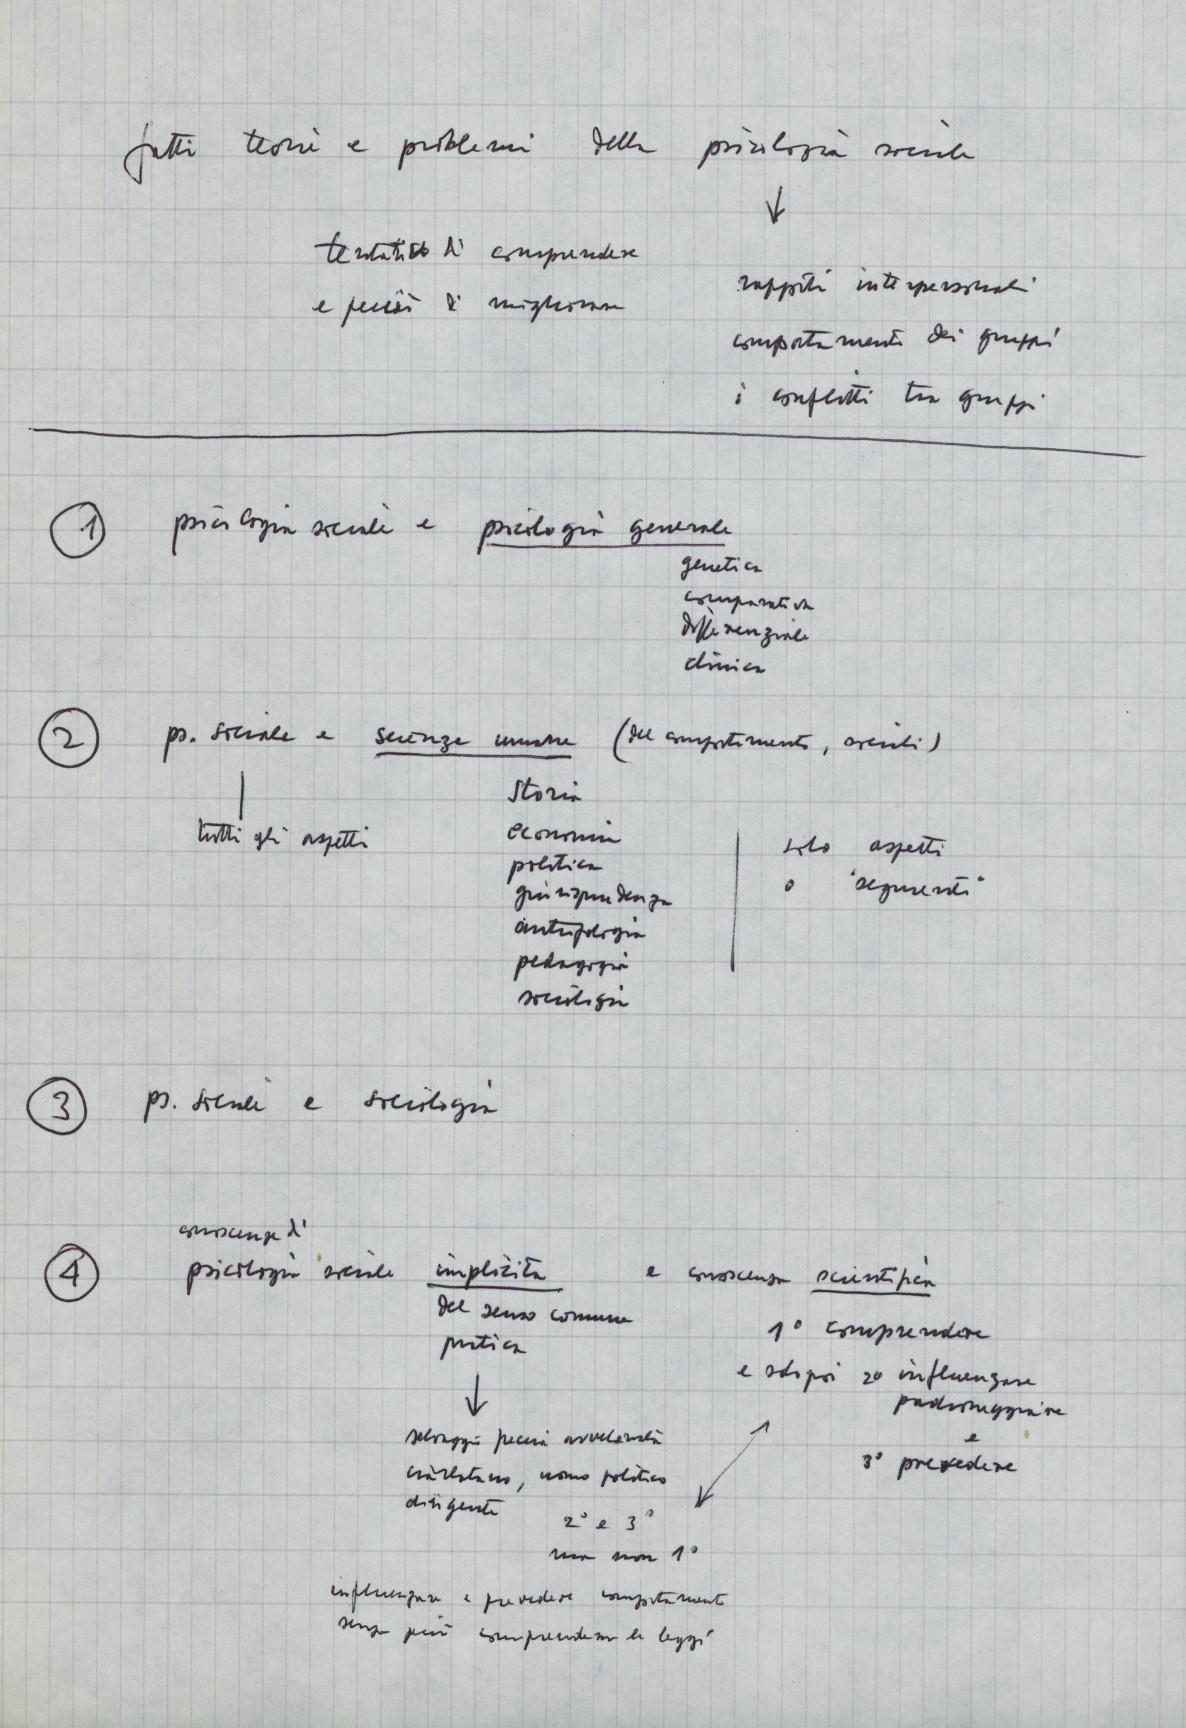 fatti teorie e problemi della psicologia sociale
tentativo di comprendere
e perciò di migliorare
rapporti interpersonali
comportamento dei gruppi
i conflitti tra gruppi
1 psicologia sociale e psicologia generale
genetica
comparativa
differenziale
clinica
2 ps. sociale e scienze umane (del comportamento, sociali)
tutti gli aspetti
storia
economia
politica
giurisprudenza
antropologia
pedagogia
sociologia
solo aspetti
o "segmenti"
3 ps. sociale e sociologia
conoscenza di
4 psicologia sociale implicita e conoscenza scientifica
del senso comune
pratica
1° comprendere
e sol poi 2° influenzare
padroneggiare
e
3° prevedere
ciarlatano, uomo politico
dirigente
2° e 3°
ma non 1°
influenzare e prevedere comportamento
senza però comprenderne le leggi